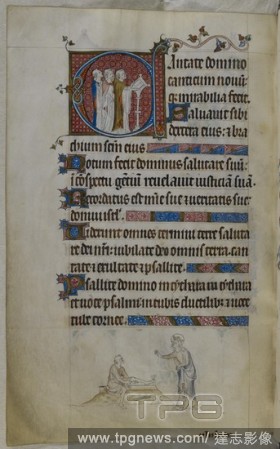 antate domino
canticum novum:
q: mirabilia fecit.
Salvavit sibi
dextera eius: & bra
chium scm eius
Notum fecit dominus salutare suu:
in conspectu gentium revelavit iusticiam suam.
Recordatus est mie sue & veritatis sue
domui isrl.
Viderunt omnes termini terre saluta
re dei nri: iubilate deo omnis terra. can
tate & exultate & psallite.
Psallite domino in cythara in cythara
et voce psalmi: in tubis ductilibus & voce
tube cornee.
TPG
www.tpgnews.com/達志影像